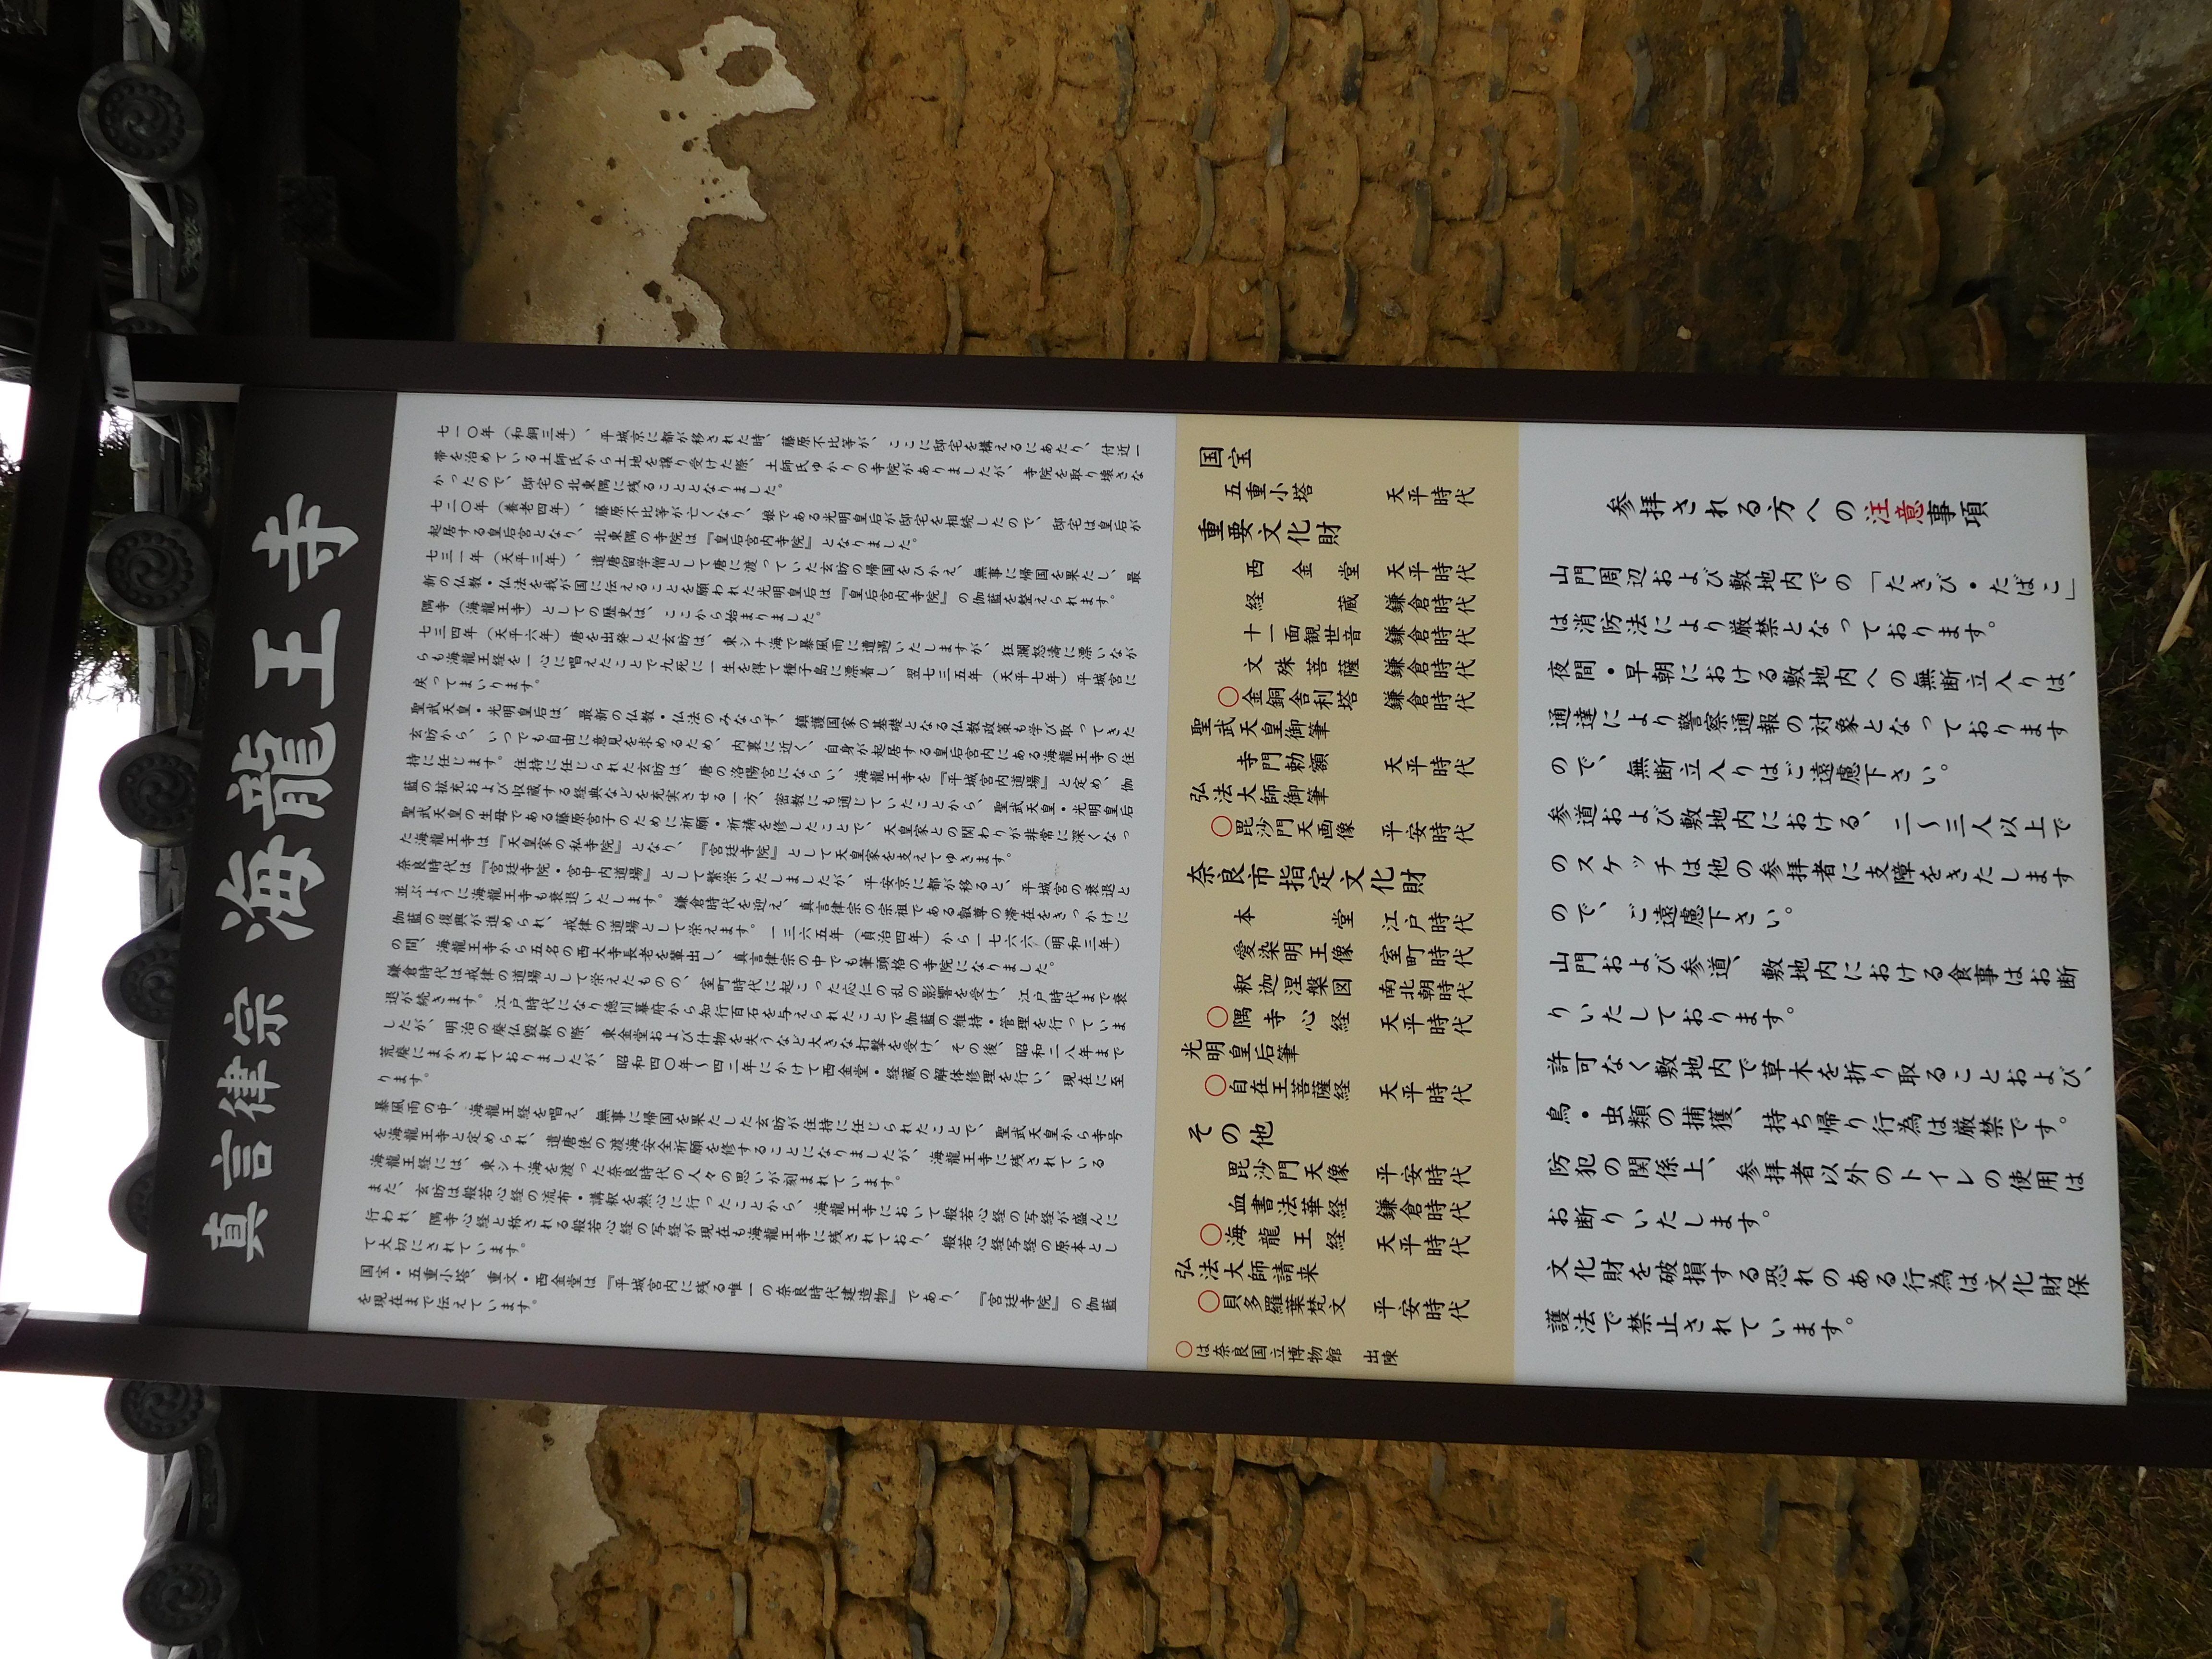 真言律宗 海龍王寺
七一〇年（和銅三年）、平城京に都が移された時、藤原不比等が、ここに邸宅を構えるにあたり、付近一
帯を治めている土師氏から土地を譲り受けた際、土師氏ゆかりの寺院がありましたが、寺院を取り壊さな
かったので、邸宅の北東隅に残ることとなりました。
七二〇年（養老四年）、藤原不比等が亡くなり、娘である光明皇后が邸宅を相続したので、邸宅は皇后が
起居する皇后宮となり、北東隅の寺院は『皇后宮内寺院』となりました。
七三一年（天平三年）、遣唐留学僧として唐に渡っていた玄昉の帰国をひかえ、無事に帰国を果たし、最
新の仏教・仏法を我が国に伝えることを願われた光明皇后は『皇后宮内寺院』の伽藍を整えられます。
隅寺（海龍王寺）としての歴史は、ここから始まりました。
七三四年（天平六年）唐を出発した玄昉は、東シナ海で暴風雨に遭遇いたしますが、狂瀾怒濤に漂いなが
らも海龍王経を一心に唱えたことで九死に一生を得て種子島に漂着し、翌七三五年（天平七年）平城宮に
戻ってまいります。
聖武天皇・光明皇后は、最新の仏教・仏法のみならず、鎮護国家の基礎となる仏教政策も学び取ってきた
玄昉から、いつでも自由に意見を求めるため、内裏に近い、自身が起居する皇后宮内にある海龍王寺の住
持に任じます。住持に任じられた玄昉は、唐の洛陽宮にならい、海龍王寺を『平城宮内道場』と定め、伽
藍の拡充および収蔵する経典などを充実させる一方、密教にも通じていたことから、聖武天皇・光明皇后
聖武天皇の生母である藤原宮子のために祈願・祈祷を修したことで、天皇家との関わりが非常に深くなっ
た海龍王寺は『天皇家の私寺院』となり、『宮廷寺院』として天皇家を支えてゆきます。
奈良時代は『宮廷寺院・宮中内道場』として繁栄いたしましたが、平安京に都が移ると、平城宮の衰退と
並ぶように海龍王寺も衰退いたします。鎌倉時代を迎え、真言律宗の宗祖である叡尊の滞在をきっかけに
伽藍の復興が進められ、戒律の道場として栄えます。一三六五年（貞治四年）から一七六六（明和三年）
の間、海龍王寺から五名の西大寺長老を輩出し、真言律宗の中でも筆頭格の寺院になりました。
鎌倉時代は戒律の道場として栄えたものの、室町時代に起こった応仁の乱の影響を受け、江戸時代まで衰
退が続きます。江戸時代になり徳川幕府から知行百石を与えられたことで伽藍の維持・管理を行っていま
したが、明治の廃仏毀釈の際、東金堂および什物を失うなど大きな打撃を受け、その後、昭和二八年まで
荒廃にまかされておりましたが、昭和四〇年～四二年にかけて西金堂・経蔵の解体修理を行い、現在に至
ります。
暴風雨の中、海龍王経を唱え、無事に帰国を果たした玄昉が住持に任じられたことで、聖武天皇から寺号
を海龍王寺と定められ、遣唐使の渡海安全祈願を修することになりましたが、海龍王寺に残されている
海龍王経には、東シナ海を渡った奈良時代の人々の思いが刻まれています。
また、玄昉は般若心経の流布・講釈を熱心に行ったことから、海龍王寺において般若心経の写経が盛んに
行われ、隅寺心経と称される般若心経の写経が現在も海龍王寺に残されており、般若心経写経の原本とし
て大切にされています。
国宝・五重小塔、重文・西金堂は『平城宮内に残る唯一の奈良時代建造物』であり、『宮廷寺院』の伽藍
を現在まで伝えています。
国宝
五重小塔 天平時代
重要文化財
西金堂 天平時代
経蔵 鎌倉時代
十一面観世音 鎌倉時代
文殊菩薩 鎌倉時代
〇金銅舎利塔 鎌倉時代
聖武天皇御筆
寺門勅額 天平時代
弘法大師御筆
〇毘沙門天画像 平安時代
奈良市指定文化財
本堂 江戸時代
愛染明王像 室町時代
釈迦涅槃図 南北朝時代
〇隅寺心経 天平時代
光明皇后筆
〇自在王菩薩経 天平時代
その他
毘沙門天像 平安時代
血書法華経 鎌倉時代
〇海龍王経 天平時代
弘法大師請来
〇貝多羅葉梵文 平安時代
〇は奈良国立博物館 出陳
参拝される方への注意事項
山門周辺および敷地内での「たきび・たばこ」
は消防法により厳禁となっております。
夜間・早朝における敷地内への無断立入りは、
通達により警察通報の対象となっております
ので、無断立入りはご遠慮下さい。
参道および敷地内における、二～三人以上で
のスケッチは他の参拝者に支障をきたします
ので、ご遠慮下さい。
山門および参道、敷地内における食事はお断
りいたしております。
許可なく敷地内で草木を折り取ることおよび、
鳥・虫類の捕獲、持ち帰り行為は厳禁です。
防犯の関係上、参拝者以外のトイレの使用は
お断りいたします。
文化財を破損する恐れのある行為は文化財保
護法で禁止されています。